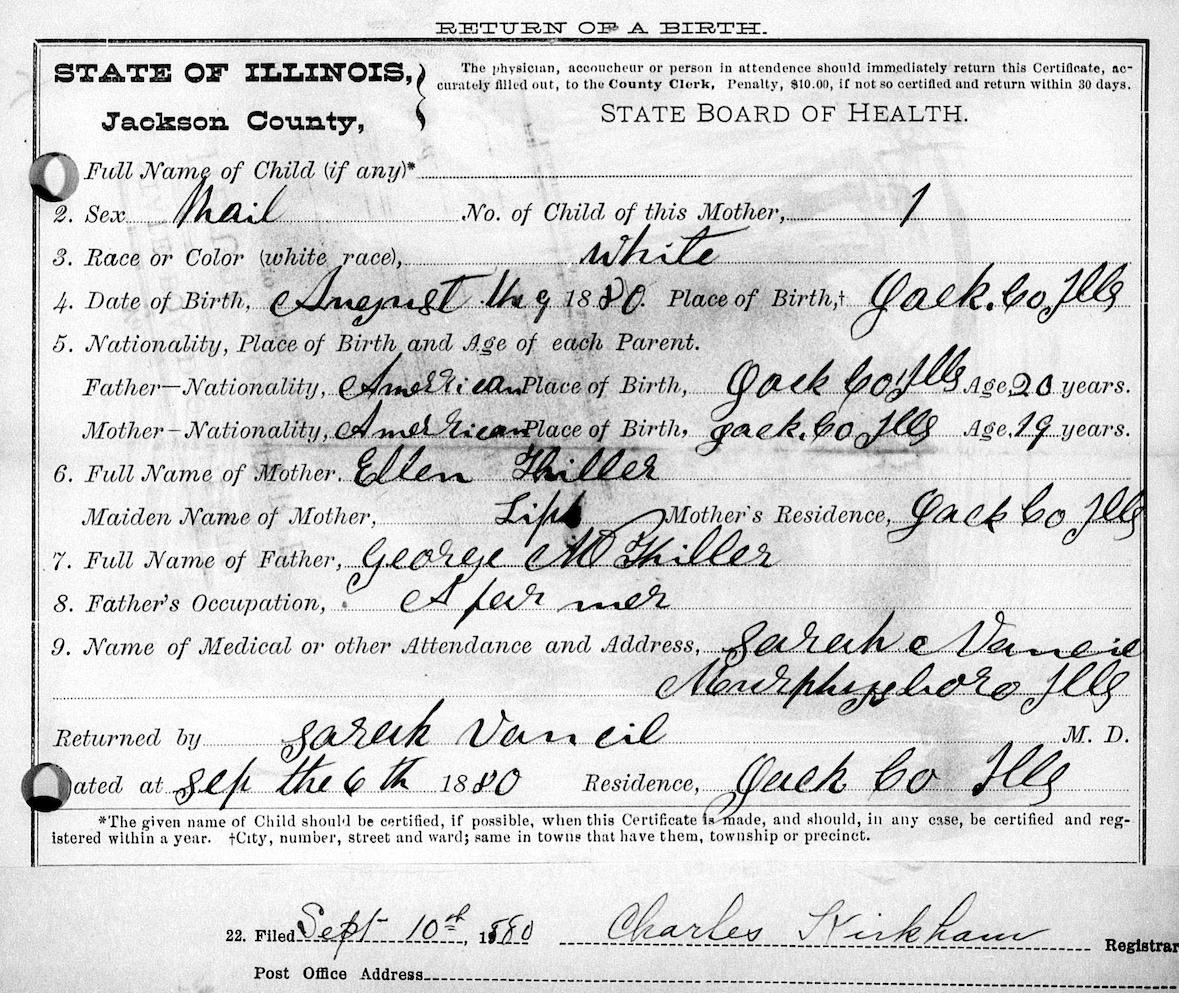 RETURN OF A BIRTH.
STATE OF ILLINOIS,
Jackson County,
The physician, accoucheur or person in attendence should immediately return this Certificate, ac-
curately filled out, to the County Clerk, Penalty, $10.00, if not so certified and return within 30 days.
STATE BOARD OF HEALTH.
Full Name of Child (if any)*
2. Sex Mail No. of Child of this Mother, 1
3. Race or Color (white race), White
4. Date of Birth, August th 9 1880. Place of Birth,† Jack. Co Ills
5. Nationality, Place of Birth and Age of each Parent.
Father—Nationality, American Place of Birth, Jack Co Ills Age, 20 years.
Mother—Nationality, American Place of Birth, Jack. Co Ills Age, 19 years.
6. Full Name of Mother. Ellen
Maiden Name of Mother, Mother's Residence, Jack Co Ills
7. Full Name of Father, George M
8. Father's Occupation, A far mer
9. Name of Medical or other Attendance and Address, Sarah c Vancil
Murphysboro Ills
Returned by Sarah Vancil M. D.
ated at Sep the 6 th 1880 Residence, Jack Co Ills
*The given name of Child should be certified, if possible, when this Certificate is made, and should, in any case, be certified and reg-
istered within a year. †City, number, street and ward; same in towns that have them, township or precinct.
22. Filed Sept 10th, 1880 Charles Kirkham Registrar
Post Office Address